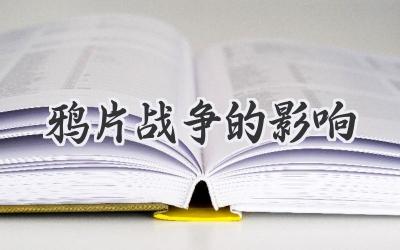 鸦片战争的影响